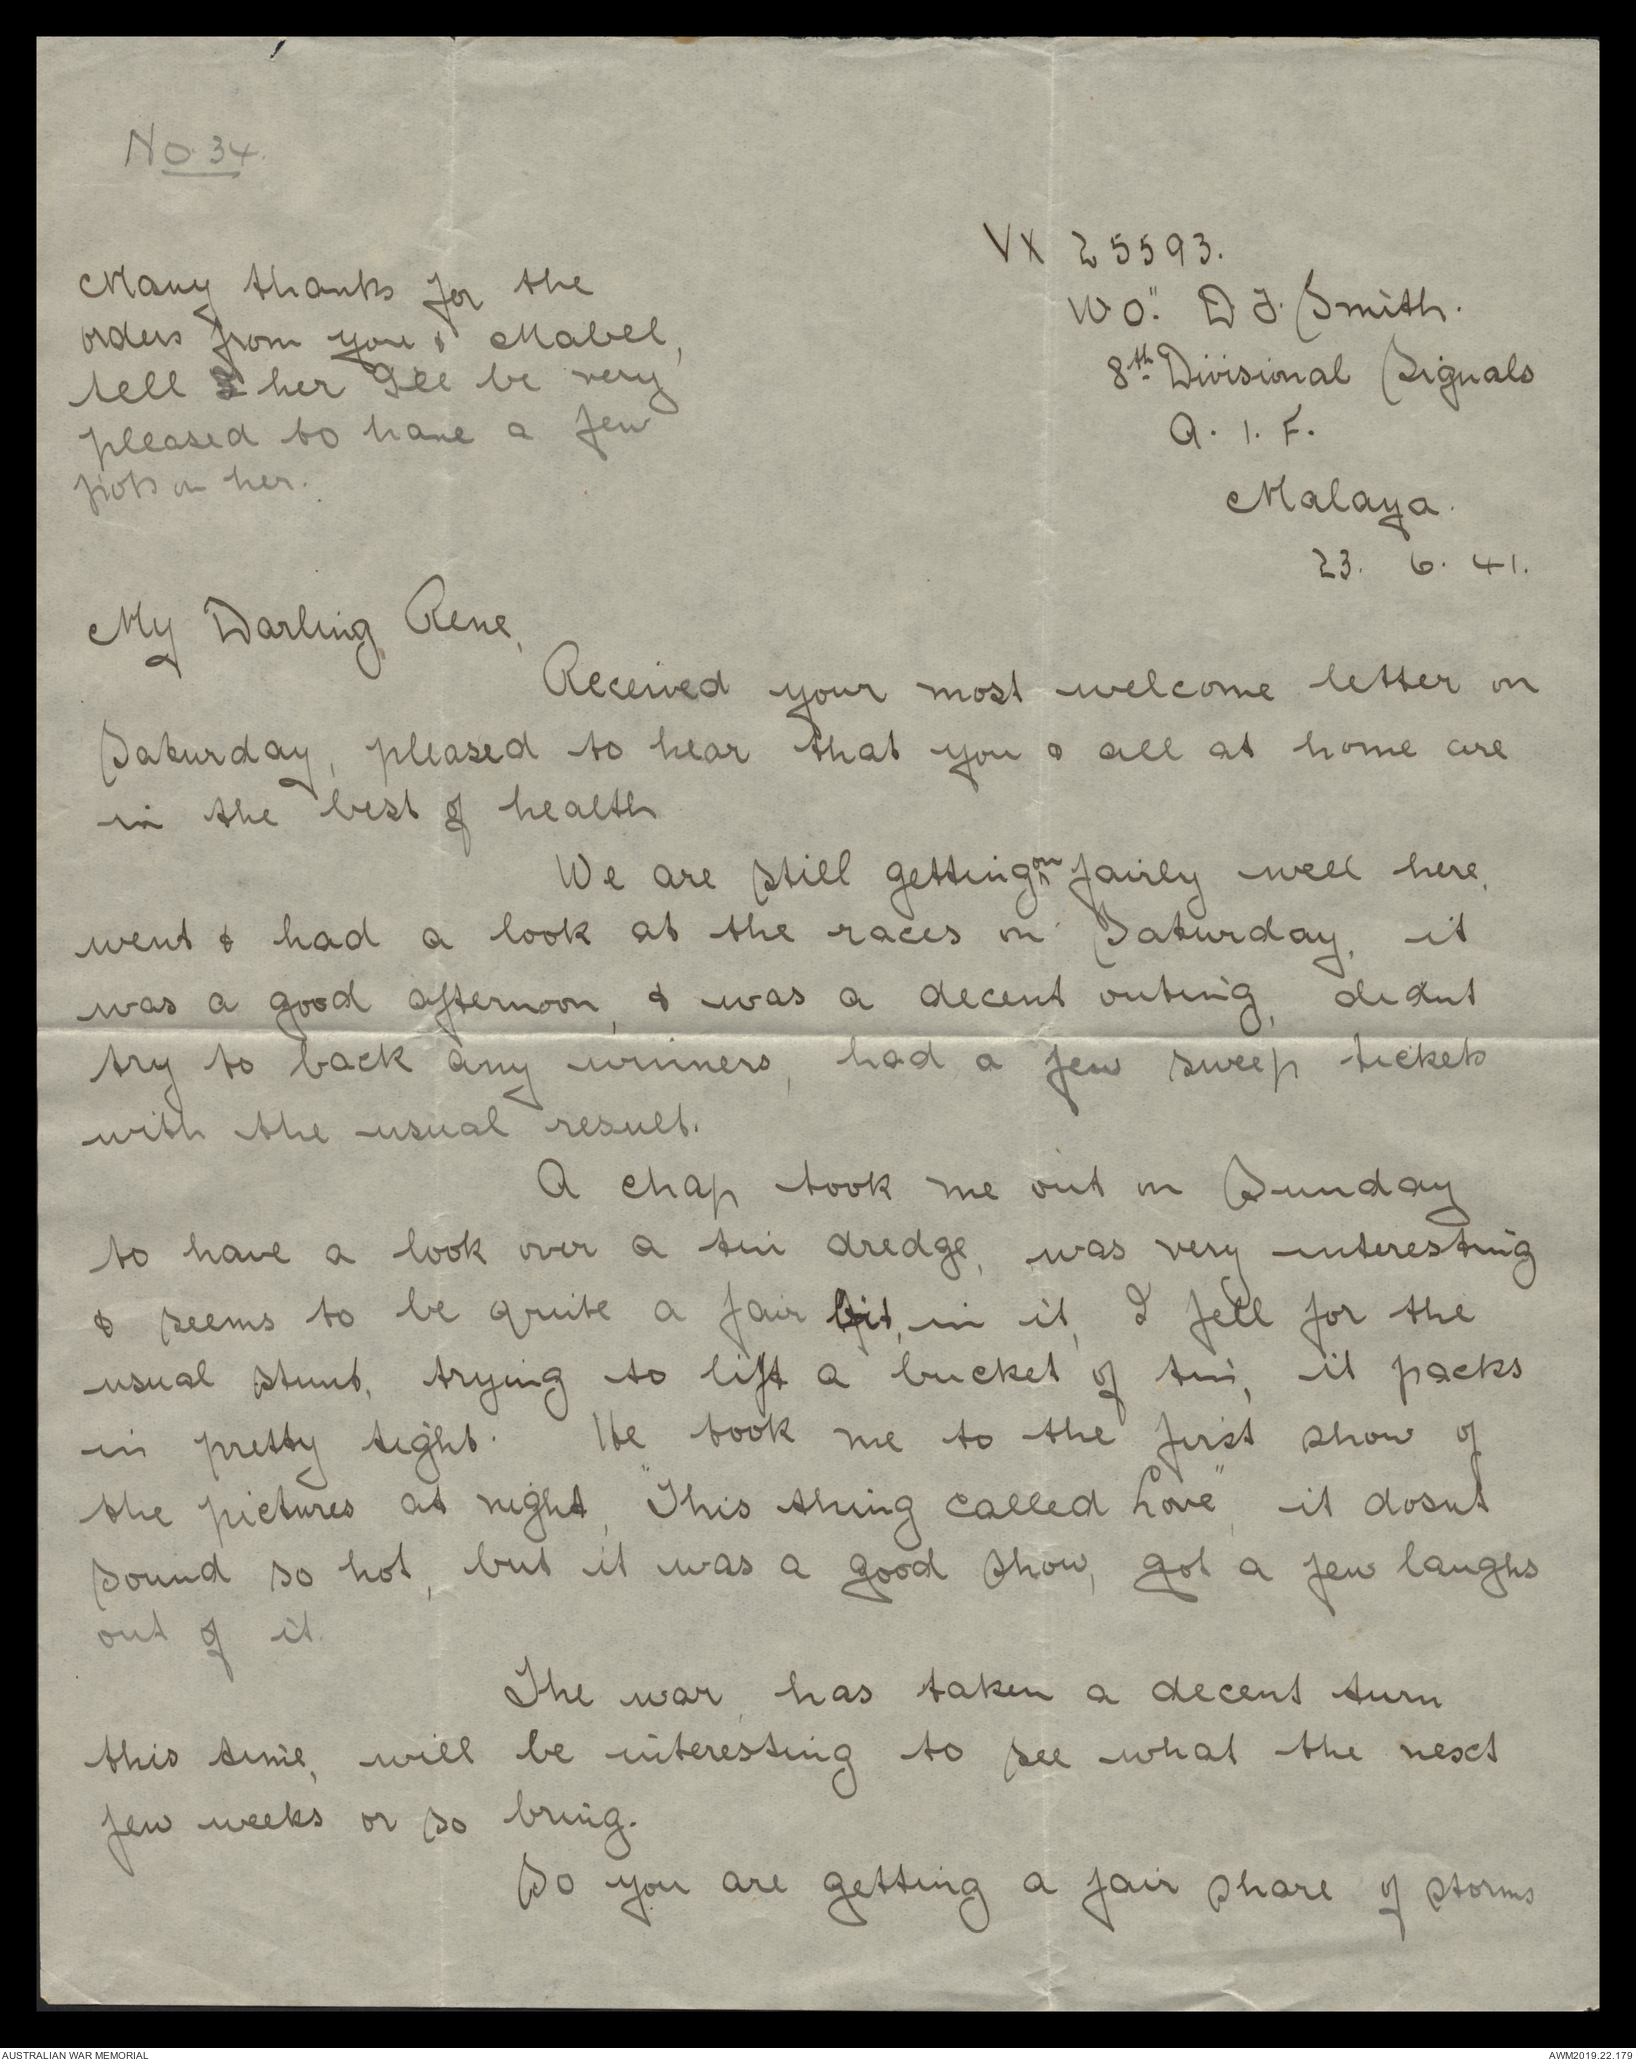 No. 34.
VX 25593.
WO." D J. Smith.
8th Divisional Signals
A. I. F.
Malaya.
23. 6. 41.
Many thanks for the
orders from you & Mabel,
tell her I'll be very
pleased to have a few
pots on her.
My Darling Rene,
Received your most welcome letter on
Saturday, pleased to hear that you & all at home are
in the best of health
We are still getting on fairly well here,
went & had a look at the races on Saturday, it
was a good afternoon, & was a decent outing, didnt
try to back any winners, had a few sweep tickets
with the usual result.
A chap took me out on Sunday
to have a look over a tin dredge, was very interesting
& seems to be quite a fair bit, in it, I fell for the
usual stunt, trying to lift a bucket of tin, it packs
in pretty tight. He took me to the first show of
the pictures at night, "This thing called Love", it dosnt
sound so hot, but it was a good show, got a few laughs
out of it.
The war, has taken a decent turn
this time, will be interesting to see what the next
few weeks or so bring.
So you are getting a fair share of storms
AUSTRALIAN WAR MEMORIAL
AWM2019.22.179